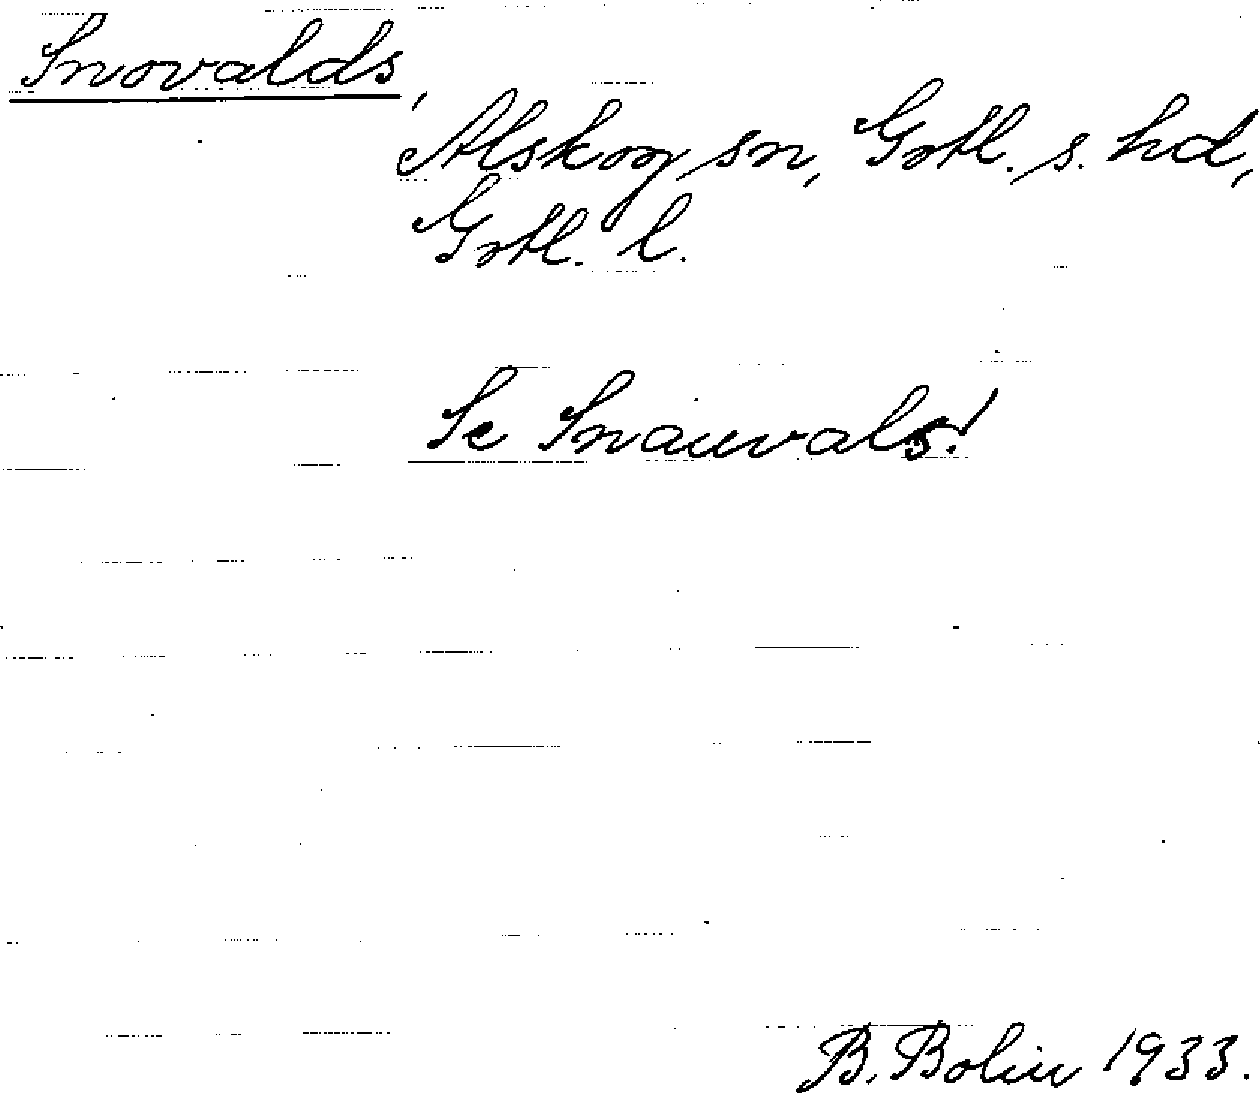 Snovalds,
Alskog sn, Gotl. s. hd,
Gotl. l.
Se Snauvals!
B. Bolin 1933.